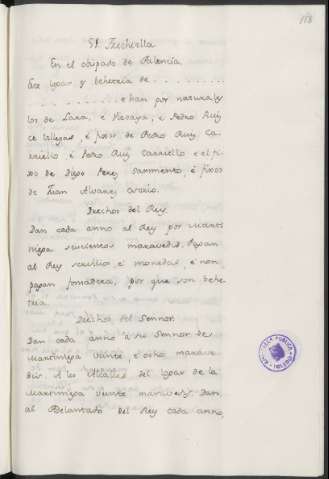 118
51 Frechiella
En el obispado de Palencia.
Este logar y behetria de . . . . . . . . .
. . . . . . . . . . e han por naturales
los de Lara, e Vizcaya, e Pedro Ruiz
de Vallegas, e fijos de Pedro Ruiz Ca-
rriello e Pedro Ruiz Carriello e el fi-
xo de Diego Perez Sarmiento, e fixos
de Juan Alvarez Osorio.
Drechos del Rey.
Dan cada anno al Rey por
seiscientos maravedis. Pagan
al Rey servicio e monedas, e non
pagan fonsadera, por que son behe-
tria.
Drechos del Sennor
Dan cada anno a su Sennor de
Martiniega veinte e ocho marave-
dis. A los Alcalles del logar de la
Martiniega veinte maravedis. Dan
al Adelantado del Rey cada anno